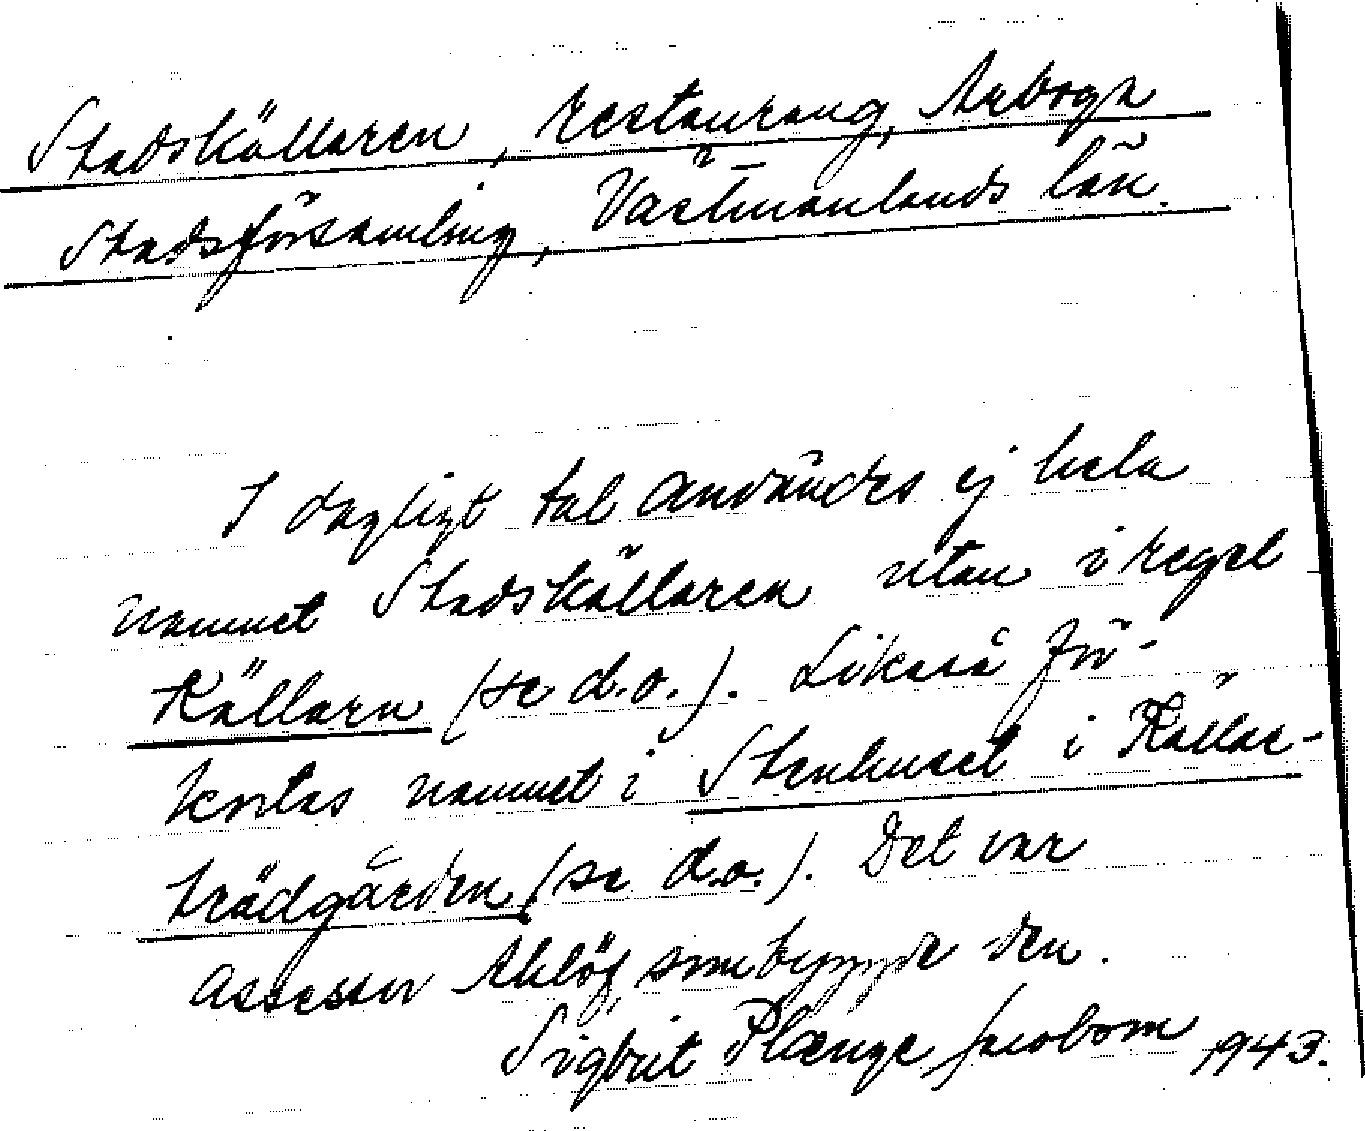 Stadskällaren, restaurang, Arboga
Stadsförsamling, Västmanlands län.
I dagligt tal användes ej hela
namnet Stadskällaren utan i regel
Källarn (se d.o.). Likaså för-
kortas namnet i Stenhuset i Källar-
trädgården (se d.o.). Det var
assessor Ahlöf, som byggde den.
Sigbrit Plænge Jacobson 1943.